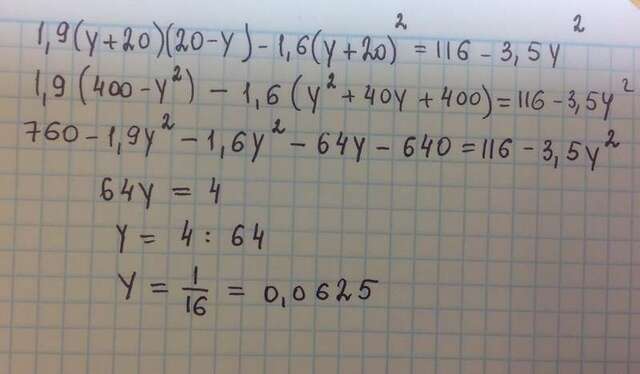 1,9(y+20)(20-y)-1,6(y+20)²=116-3,5y²
1,9(400-y²)-1,6(y²+40y+400)=116-3,5y²
760-1,9y²-1,6y²-64y-640=116-3,5y²
64y=4
y=4:64
y=1/16=0,0625